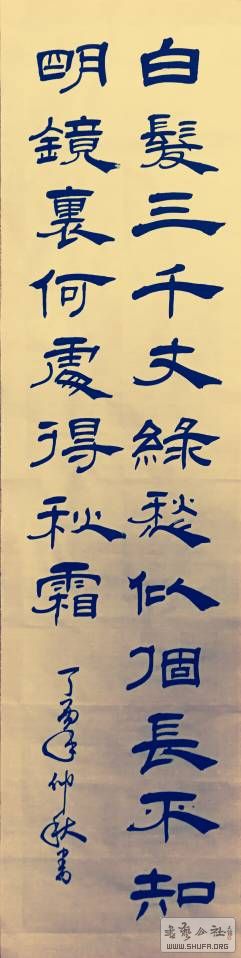 白髮三千丈緣愁似個長不知
明鏡裏何處得秋霜
丁酉年仲秋書
书艺公社
WWW.SHUFA.ORG